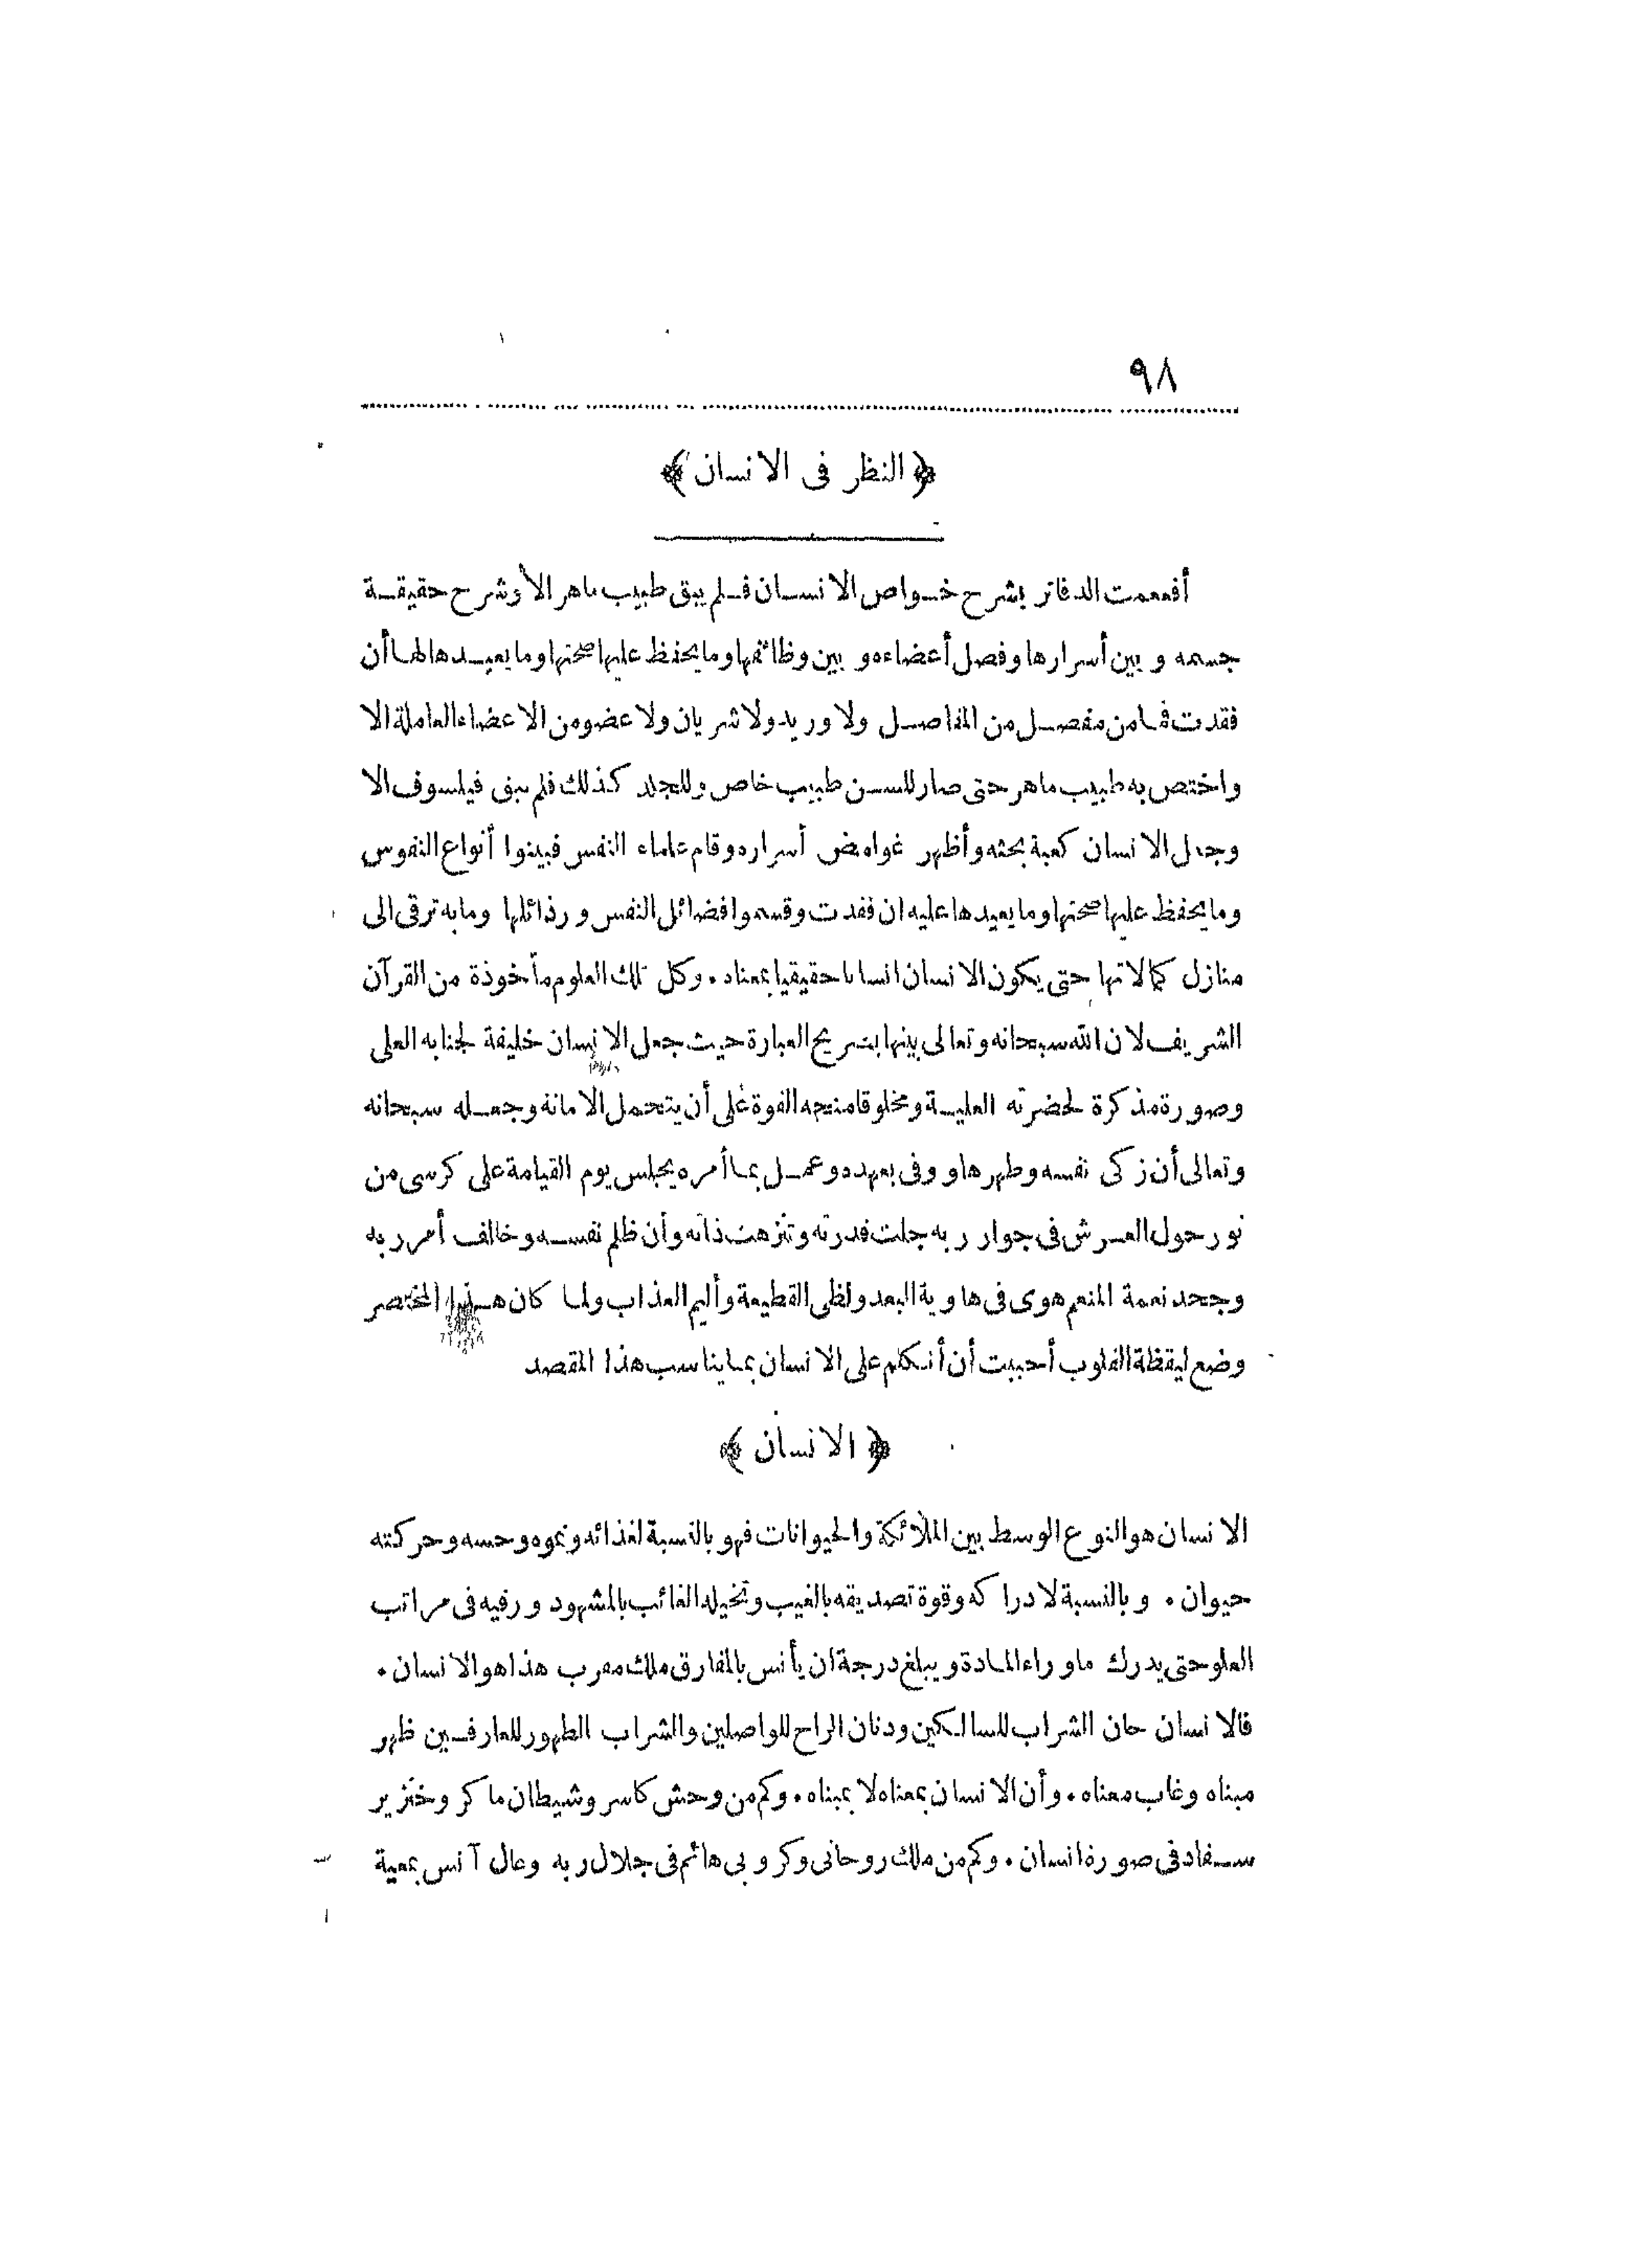 ٩٨
﴿ النظر فى الانسان ﴾
أفعمت الدفاتر بشرح خواص الانسان فلم يبق طبيب ماهر الا وشرح حقيقة
جسمه و بين أسرارها وفصل أعضاءه و بين وظائفها وما يحفظ عليها صحتها وما يعيدها لها أن
فقدت فما من مفصل من المفاصل ولا وريد ولا شريان ولا عضو من الاعضاء العاملة الا
واختص به طبيب ماهر حتى صار للسن طبيب خاص وللجلد كذلك فلم يبق فيلسوف الا
وجعل الانسان كعبة بحثه وأظهر غوامض أسراره وقام علماء النفس فبينوا أنواع النفوس
وما يحفظ عليها صحتها وما يعيدها عليه ان فقدت وقسموا فضائل النفس ورذائلها وما به ترقى الى
منازل كمالاتها حتى يكون الانسان انسانا حقيقيا بمعناه . وكل تلك العلوم مأخوذة من القرآن
الشريف لان الله سبحانه وتعالى بينها بتصريح العبارة حيث جعل الانسان خليفة لجنابه العلى
وصورة مذكرة لحضرته العلية ومخلوقا منحه القوة على أن يتحمل الامانة وجعله سبحانه
وتعالى أن زكى نفسه وطهرها و وفى بعهده وعمل بما أمره يجلس يوم القيامة على كرسى من
نور حول العرش فى جوار ربه جلت قدرته وتنزهت ذاته وأن ظلم نفسه وخالف أمر ربه
وجحد نعمة المنعم هوى فى هاوية البعد ولظى القطيعة وأليم العذاب ولما كان هذا المختصر
وضع ليقظة القلوب أحببت أن أتكلم على الانسان بما يناسب هذا المقصد
﴿ الانسان ﴾
الانسان هو النوع الوسط بين الملائكة والحيوانات فهو بالنسبة لغذائه ونموه وحسه وحركته
حيوان . وبالنسبة لادراكه وقوة تصديقه بالغيب وتخيله الغائب بالمشهود ورقيه فى مراتب
العلو حتى يدرك ما وراء المادة ويبلغ درجة ان يأنس بالمفارق ملك مقرب هذا هو الانسان .
فالانسان حان الشراب للسالكين ودنان الراح للواصلين والشراب الطهور للعارفين ظهر
مبناه وغاب معناه . وأن الانسان بمعناه لا بمبناه . وكم من وحش كاسر وشيطان ماكر وخنزير
سفاد فى صورة انسان . وكم من ملك روحانى وكروبى هائم فى جلال ربه وعال آنس بمعية